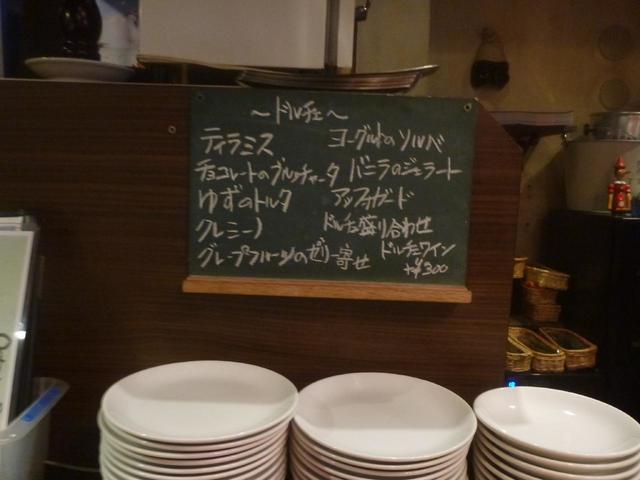 ～ドルチェ～
ティラミス
チョコレートのブルッチャータ
ゆずのトルタ
クレミーノ
グレープフルーツのゼリー寄せ
ヨーグルトのソルベ
バニラのジェラート
アッフォガード
ドルチェ盛り合わせ
ドルチェワイン
+¥300